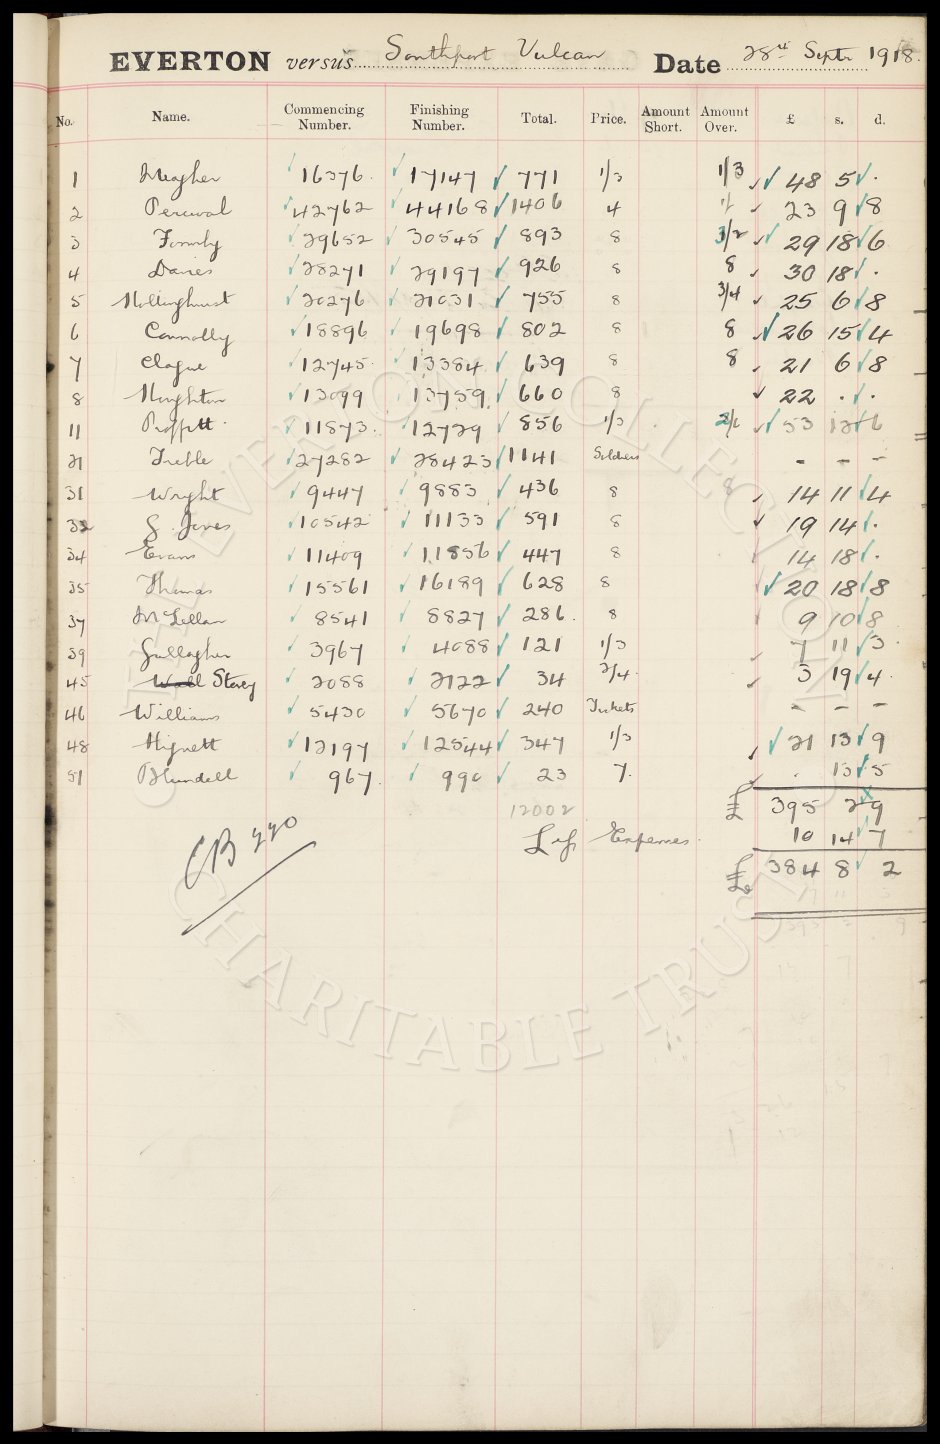 EVERTON versus Southport Vulcan Date 28th Septr 1918.
No. Name. Commencing Number. Finishing Number. Total. Price. Amount Short. Amount Over. £ s. d.
1 Meagher 16376. 17147 771 1/3 1/3 48 5 .
2 Percival 42762 44168 1406 4 23 9 8
3 Formby 29652 30545 893 8 1/2 29 18 6
4 Davies 28271 29197 926 8 8 30 18 .
5 Hollinghurst 20276 21031 755 8 3/4 25 6 8
6 Connolly 18896 19698 802 8 8 26 15 4
7 Clague 12745 13384 639 8 8 21 6 8
8 Houghton 13099 13759 660 8 22 . .
11 Proffitt 11873 12729 856 1/3 53 12 6
21 Treble 27282 28423 1141 Soldiers - - -
31 Wright 9447 9883 436 8 8 14 11 4
32 G. Jones 10542 11133 591 8 19 14 .
34 Evans 11409 11856 447 8 14 18 .
35 Thomas 15561 16189 628 8 20 18 8
37 McLellan 8541 8827 286 8 9 10 8
39 Gallagher 3967 4088 121 1/3 7 11 3
45 Storey 2088 2122 34 2/4 3 19 4
46 Williams 5430 5670 240 Tickets - - -
48 Hignett 12197 12544 347 1/3 21 13 9
51 Blundell 967 990 23 7. . 13 5
12002 £ 395 2 9
CB 220 Less Expenses 10 14 7
£ 384 8 2
THE EVERTON COLLECTION
CHARITABLE TRUST